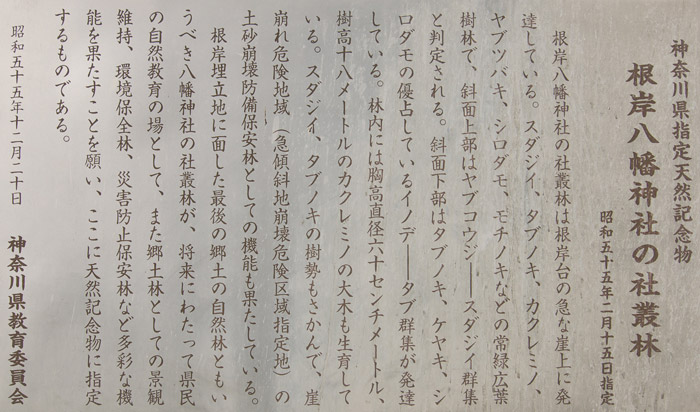 神奈川県指定天然記念物
根岸八幡神社の社叢林
昭和五十五年二月十五日指定
根岸八幡神社の社叢林は根岸台の急な崖上に発
達している。スダジイ、タブノキ、カクレミノ、
ヤブツバキ、シロダモ、モチノキなどの常緑広葉
樹林で、斜面上部はヤブコウジ――スダジイ群集
と判定される。斜面下部はタブノキ、ケヤキ、シ
ロダモの優占しているイノデ――タブ群集が発達
している。林内には胸高直径六十センチメートル、
樹高十八メートルのカクレミノの大木も生育して
いる。スダジイ、タブノキの樹勢もさかんで、崖
崩れ危険地域（急傾斜地崩壊危険区域指定地）の
土砂崩壊防備保安林としての機能も果たしている。
根岸埋立地に面した最後の郷土の自然林ともい
うべき八幡神社の社叢林が、将来にわたって県民
の自然教育の場として、また郷土林としての景観
維持、環境保全林、災害防止保安林など多彩な機
能を果たすことを願い、ここに天然記念物に指定
するものである。
昭和五十五年十二月二十日
神奈川県教育委員会